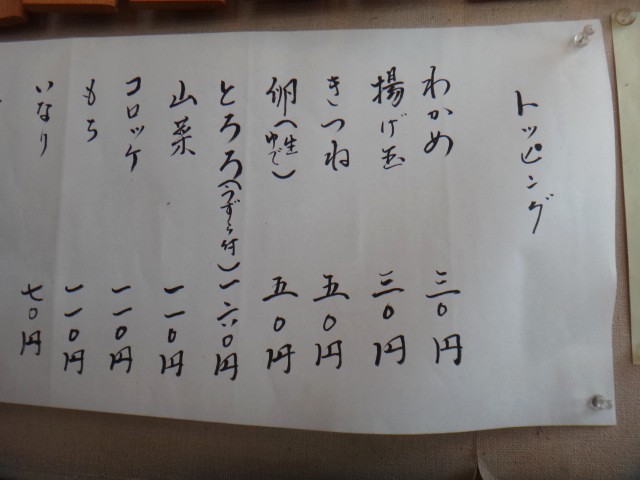 トッピング
わかめ 三〇円
揚げ玉 三〇円
きつね 五〇円
卵(生ゆで) 五〇円
とろろ(うずら付) 一六〇円
山菜 一一〇円
コロッケ 一一〇円
もち 一一〇円
いなり 七〇円